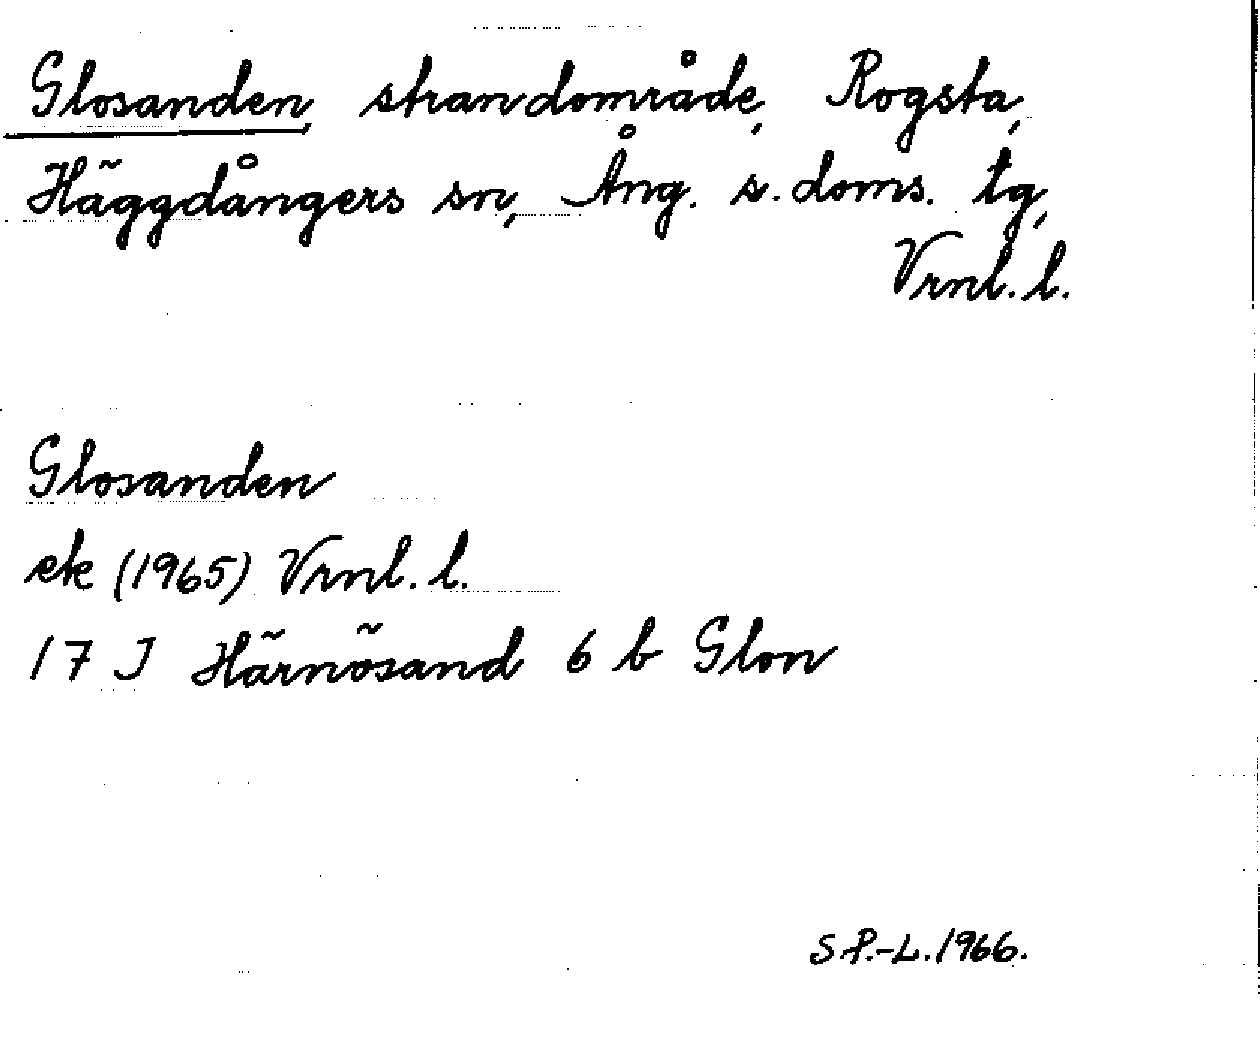 Glosanden, strandområde, Rogsta,
Häggdångers sn, Ång. s. doms. tg,
Vrnl. l.
Glosanden
ek (1965) Vrnl. l.
17 J Härnösand 6 b Glon
S.P.-L. 1966.